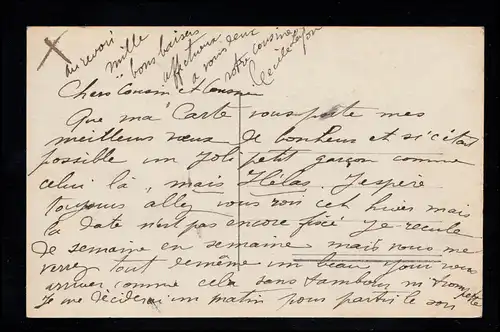 Chers Cousin et Cousine
Que ma Carte vous porte mes
meilleurs vœux de bonheur et si c'était
possible un Joli petit garçon comme
celui là, mais Hélas, J'espère
toujours aller vous voir cet hiver mais
la date n'est pas encore fixée je recule
de semaine en semaine mais vous me
verrez tout de même un beau jour vous
arriver comme cela sans tambour ni trompette
Je me déciderai un matin pour partir le soir
au revoir
mille bons baisers
affectueux
à vous deux
votre cousine
Cécile